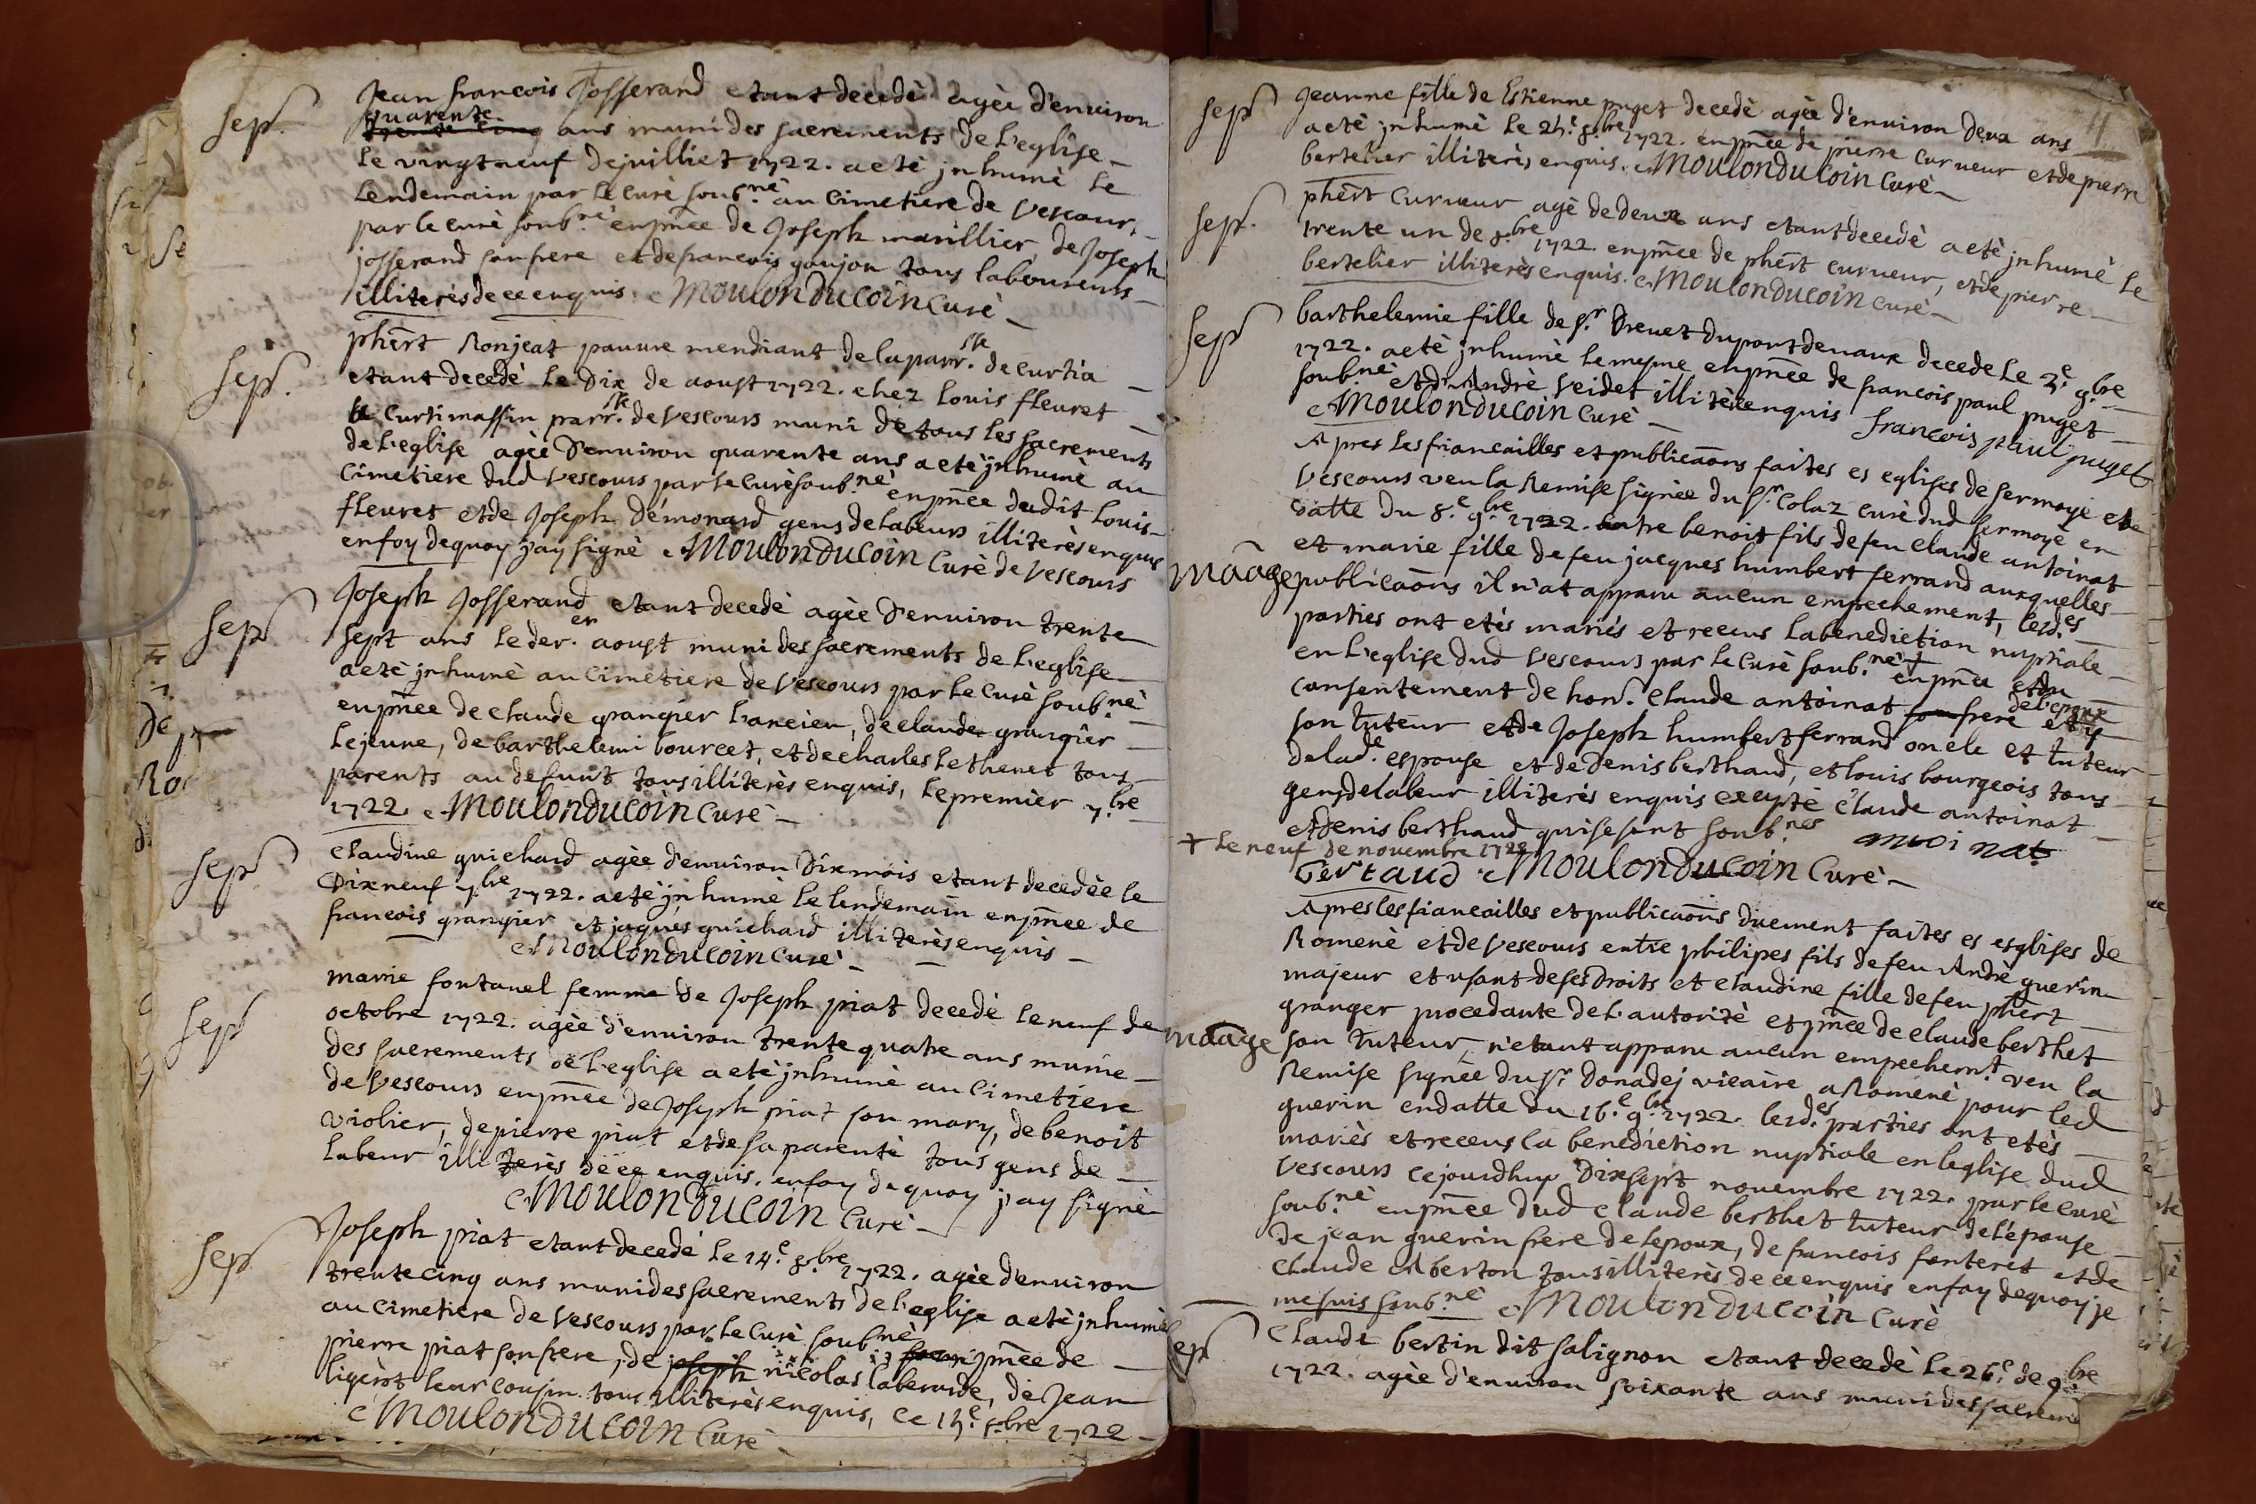 Jean francois Josserand etant decedè agèe d'environ
quarente
trente cinq ans muni des sacrements de l'eglise
le vingt neuf de juilliet 1722. a etè jnhumè le
lendemain par le curè soub.né au cimetiere de vescour,
par le curè soub.né enpñce de Joseph marillier, de Joseph
josserand son frere et de francois goujon tous laboureurs
illiterès de ce enquis. Moulonducoin Curè
sep.
phert Ronjeat pauvre mendiant de la parr.sse de curtia
etant decedè le Dix de aoust 1722. chez louis fleuret
a Curtimassin parr.sse de vescours muni de tous les sacrements
de l'eglise agèe d'environ quarente ans a etè jnhumè au
Cimetiere dud vescours par le curè soub.né enpñce dudit louis
fleuret et de Joseph démonard gens de labeurs illiterès enquis
enfoy dequoy j'ay signè Moulonducoin Curè de vescours
sep.
Joseph Josserand etant decedè agèe d'environ trente
sept ans le der.er aoust muni des sacrements de l'eglise
a etè jnhumè au cimetiere de vescours par le curè soub.né
enpñce de claude grangier l'ancien, de claude grangier
le jeune, de barthelemi bourcet, et de charles lethenet tous
parents au defunt tous illiterès enquis, le premier 7.bre
1722. Moulonducoin Curè
sep
Claudine guichard agèe d'environ Dix mois etant decedèe le
Dixneuf 7bre 1722. a etè jnhumè le lendemain enpñce de
francois grangier et jaques guichard illiterès enquis
Moulonducoin Curè
sep.
marie fontanel femme de Joseph piat decedè le neuf de
octobre 1722. agèe d'environ trente quatre ans munie
des sacrements de l'eglise a etè jnhumè au cimetiere
de vescours enpñce de Joseph piat son mary, de benoit
violier, de pierre piat et de sa parentè tous gens de
labeur illiterès de ce enquis. enfoy dequoy j'ay signè
Moulonducoin Curè
sep
Joseph piat etant decedé le 14.e 8.bre 1722. agèe d'environ
trentecinq ans muni des sacrements de l'eglise a etè jnhumè
au cimetiere de vescours par le curè soub.né enpñce de
pierre piat son frere, de joseph nicolas laberarde, de Jean
ligerot leur cousin tous illiterès enquis, ce 15.e 8.bre 1722
Moulonducoin Curè
sep.
sep
Jeanne fille de Estienne puget decedè agèe d'environ deux ans
a etè jnhumè le 25.e 8.bre 1722. enpñce de pierre curveur et de pierre
bertelier illiterès enquis. Moulonducoin Curè
sep.
phert Curveur agè de deux ans etant decedè a etè jnhumè le
trente un de 8.bre 1722. enpñce de phert curveur, et de pierre
bertelier illiterès enquis. Moulonducoin Curè
sep
barthelemie fille de s.r Drevet dupontdevaux decede le 2.e 9.bre
1722. a etè jnhumè le mesme enpñce de francois paul puget
soub.né et d'Andrè veidet illiterè enquis francois paul puget
Moulonducoin Curè
Apres les fiancailles et publicaõns faites es eglises de sermoyè et de
vescours veu la Remise signèe du s.r Colaz curè dud sermoyè en
datte du 8.e 9.bre 1722. entre benoit fils de feu claude antoinat
et marie fille de feu jacques humbert ferrand auxquelles
maãge publicaõns il n'at apparu aucun empechement, lesd.es
parties ont etès mariès et receus la benediction nuptiale
en l'eglise dud vescours par le curè soub.né + enpñce et du
consentement de hon. Claude antoinat son frere de l'epoux et
son tuteur et de Joseph humbert ferrand oncle et tuteur
de lad.e espouse et de denis berthaud, et louis bourgeois tous
gens de labeur illiterès enquis excepté claude antoinat
et denis berthaud qui se sont soub.nés antoi nat
+ le neuf de novembre 1722
bertaud Moulonducoin Curè
Apres les fiancailles et publicaõns duement faites es esglises de
Romenè et de vescours entre philipes fils de feu Andrè guerin
majeur et usant de ses droits et claudine fille de feu phert
granger procedante de l'autorité et pñce de claude berthet
maãge son tuteur, n'etant apparu aucun empechem.t veu la
Remise signèe du s.r Donadej vicaire a Romenè pour led
guerin endatte du 16.e 9.bre 1722. lesd.es parties ont etès
mariès et receus la benediction nuptiale en leglise dud
vescours cejourdhuy Dixsept novembre 1722. par le curè
soub.né enpñce dud claude berthet tuteur de l'épouse
de jean guerin frere de l'epoux, de francois fonteret et de
claude Alberton tous illiterès de ce enquis enfoy dequoy je
me suis soub.né Moulonducoin Curè
sep
Claude bertin dit salignon etant decedè le 26.e de 9.bre
1722. agèe d'environ soixante ans muni des sacrem